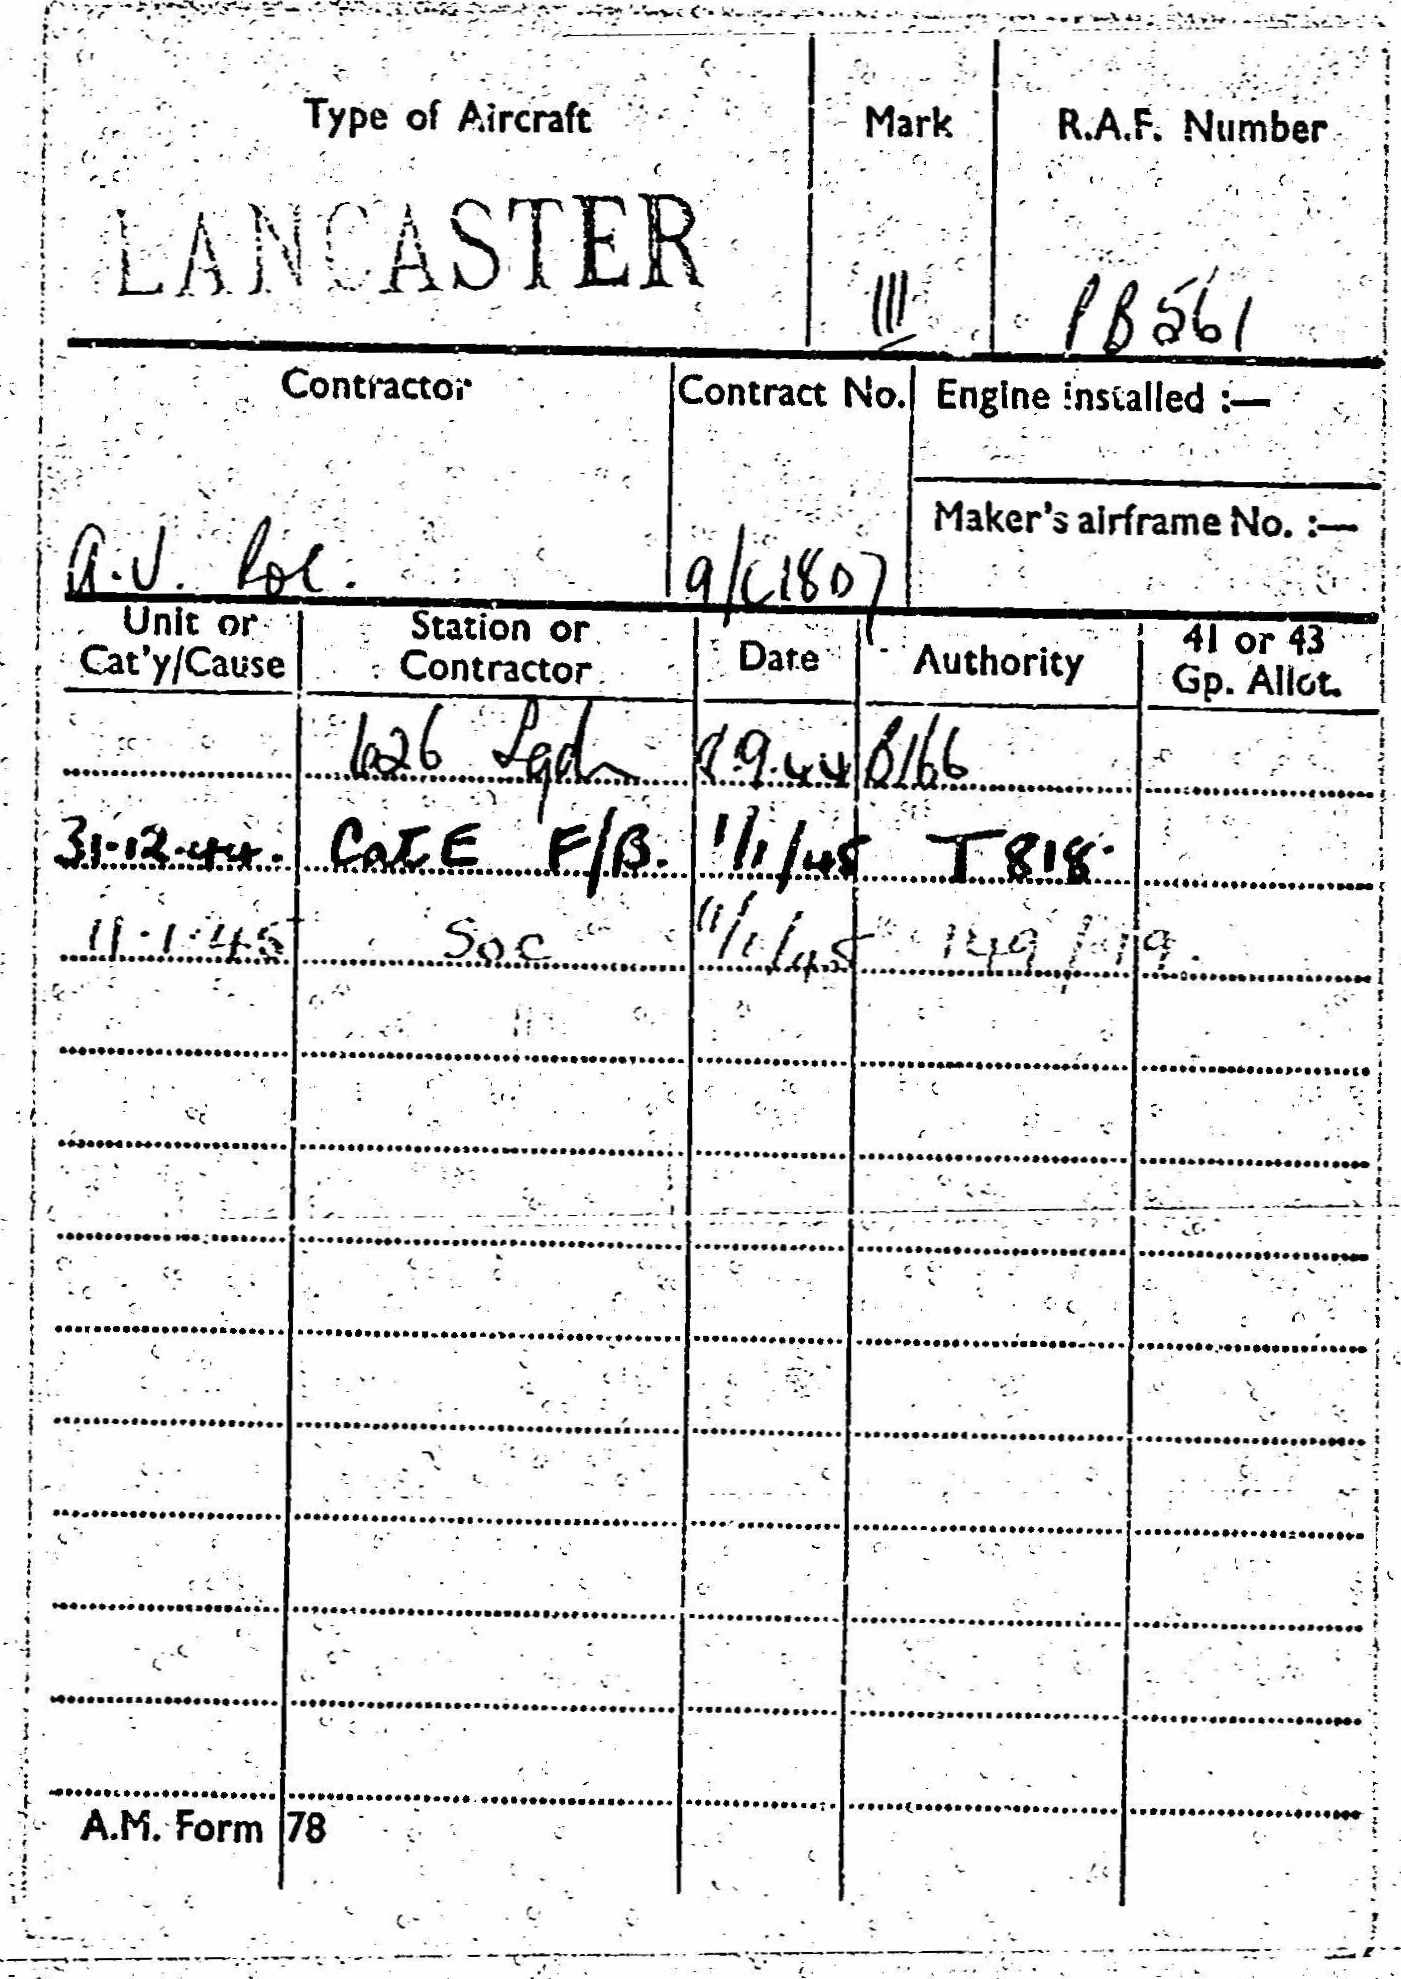 Type of Aircraft Mark R.A.F. Number
LANCASTER III PB561
Contractor Contract No. Engine installed :—
Maker's airframe No. :—
A.V. Roe. 9/C1807
Unit or Cat'y/Cause Station or Contractor Date Authority 41 or 43 Gp. Allot.
626 Sqdn 8.9.44 B166
31.12.44. Cat E F/B. 1/1/45 T 818.
11.1.45 SOC 11/1/45 149/119.
A.M. Form 78